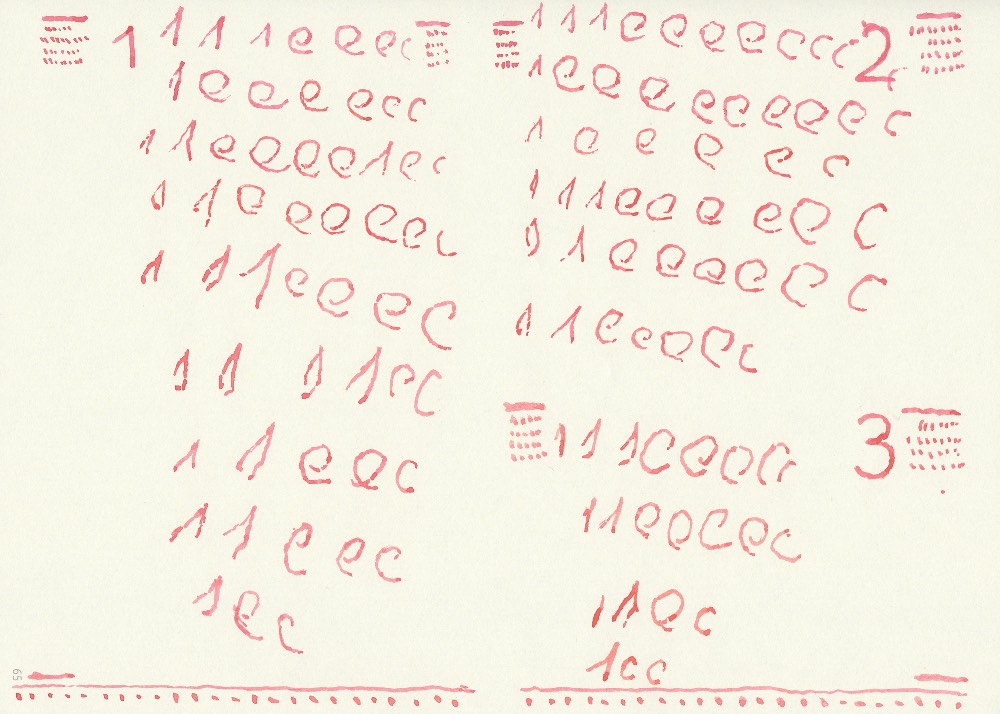 1 1 1 1 e e e c
1 e e e e c c
1 1 e e e e 1 e c
1 1 e e e e e c
1 1 1 e e e c
1 1 1 1 e c
1 1 e e c
1 1 e e c
1 e c
59
1 1 1 e e e e c c c 2
1 e e e e e e e e c
1 e e e e c
1 1 1 e e e e e c
1 1 e e e e e c
1 1 e e e e c
1 1 1 c e e c 3
1 1 e e c e c
1 1 e c
1 c c